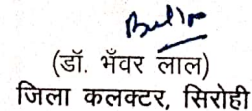 (डॉ. भँवर लाल)
जिला कलक्टर, सिरोही